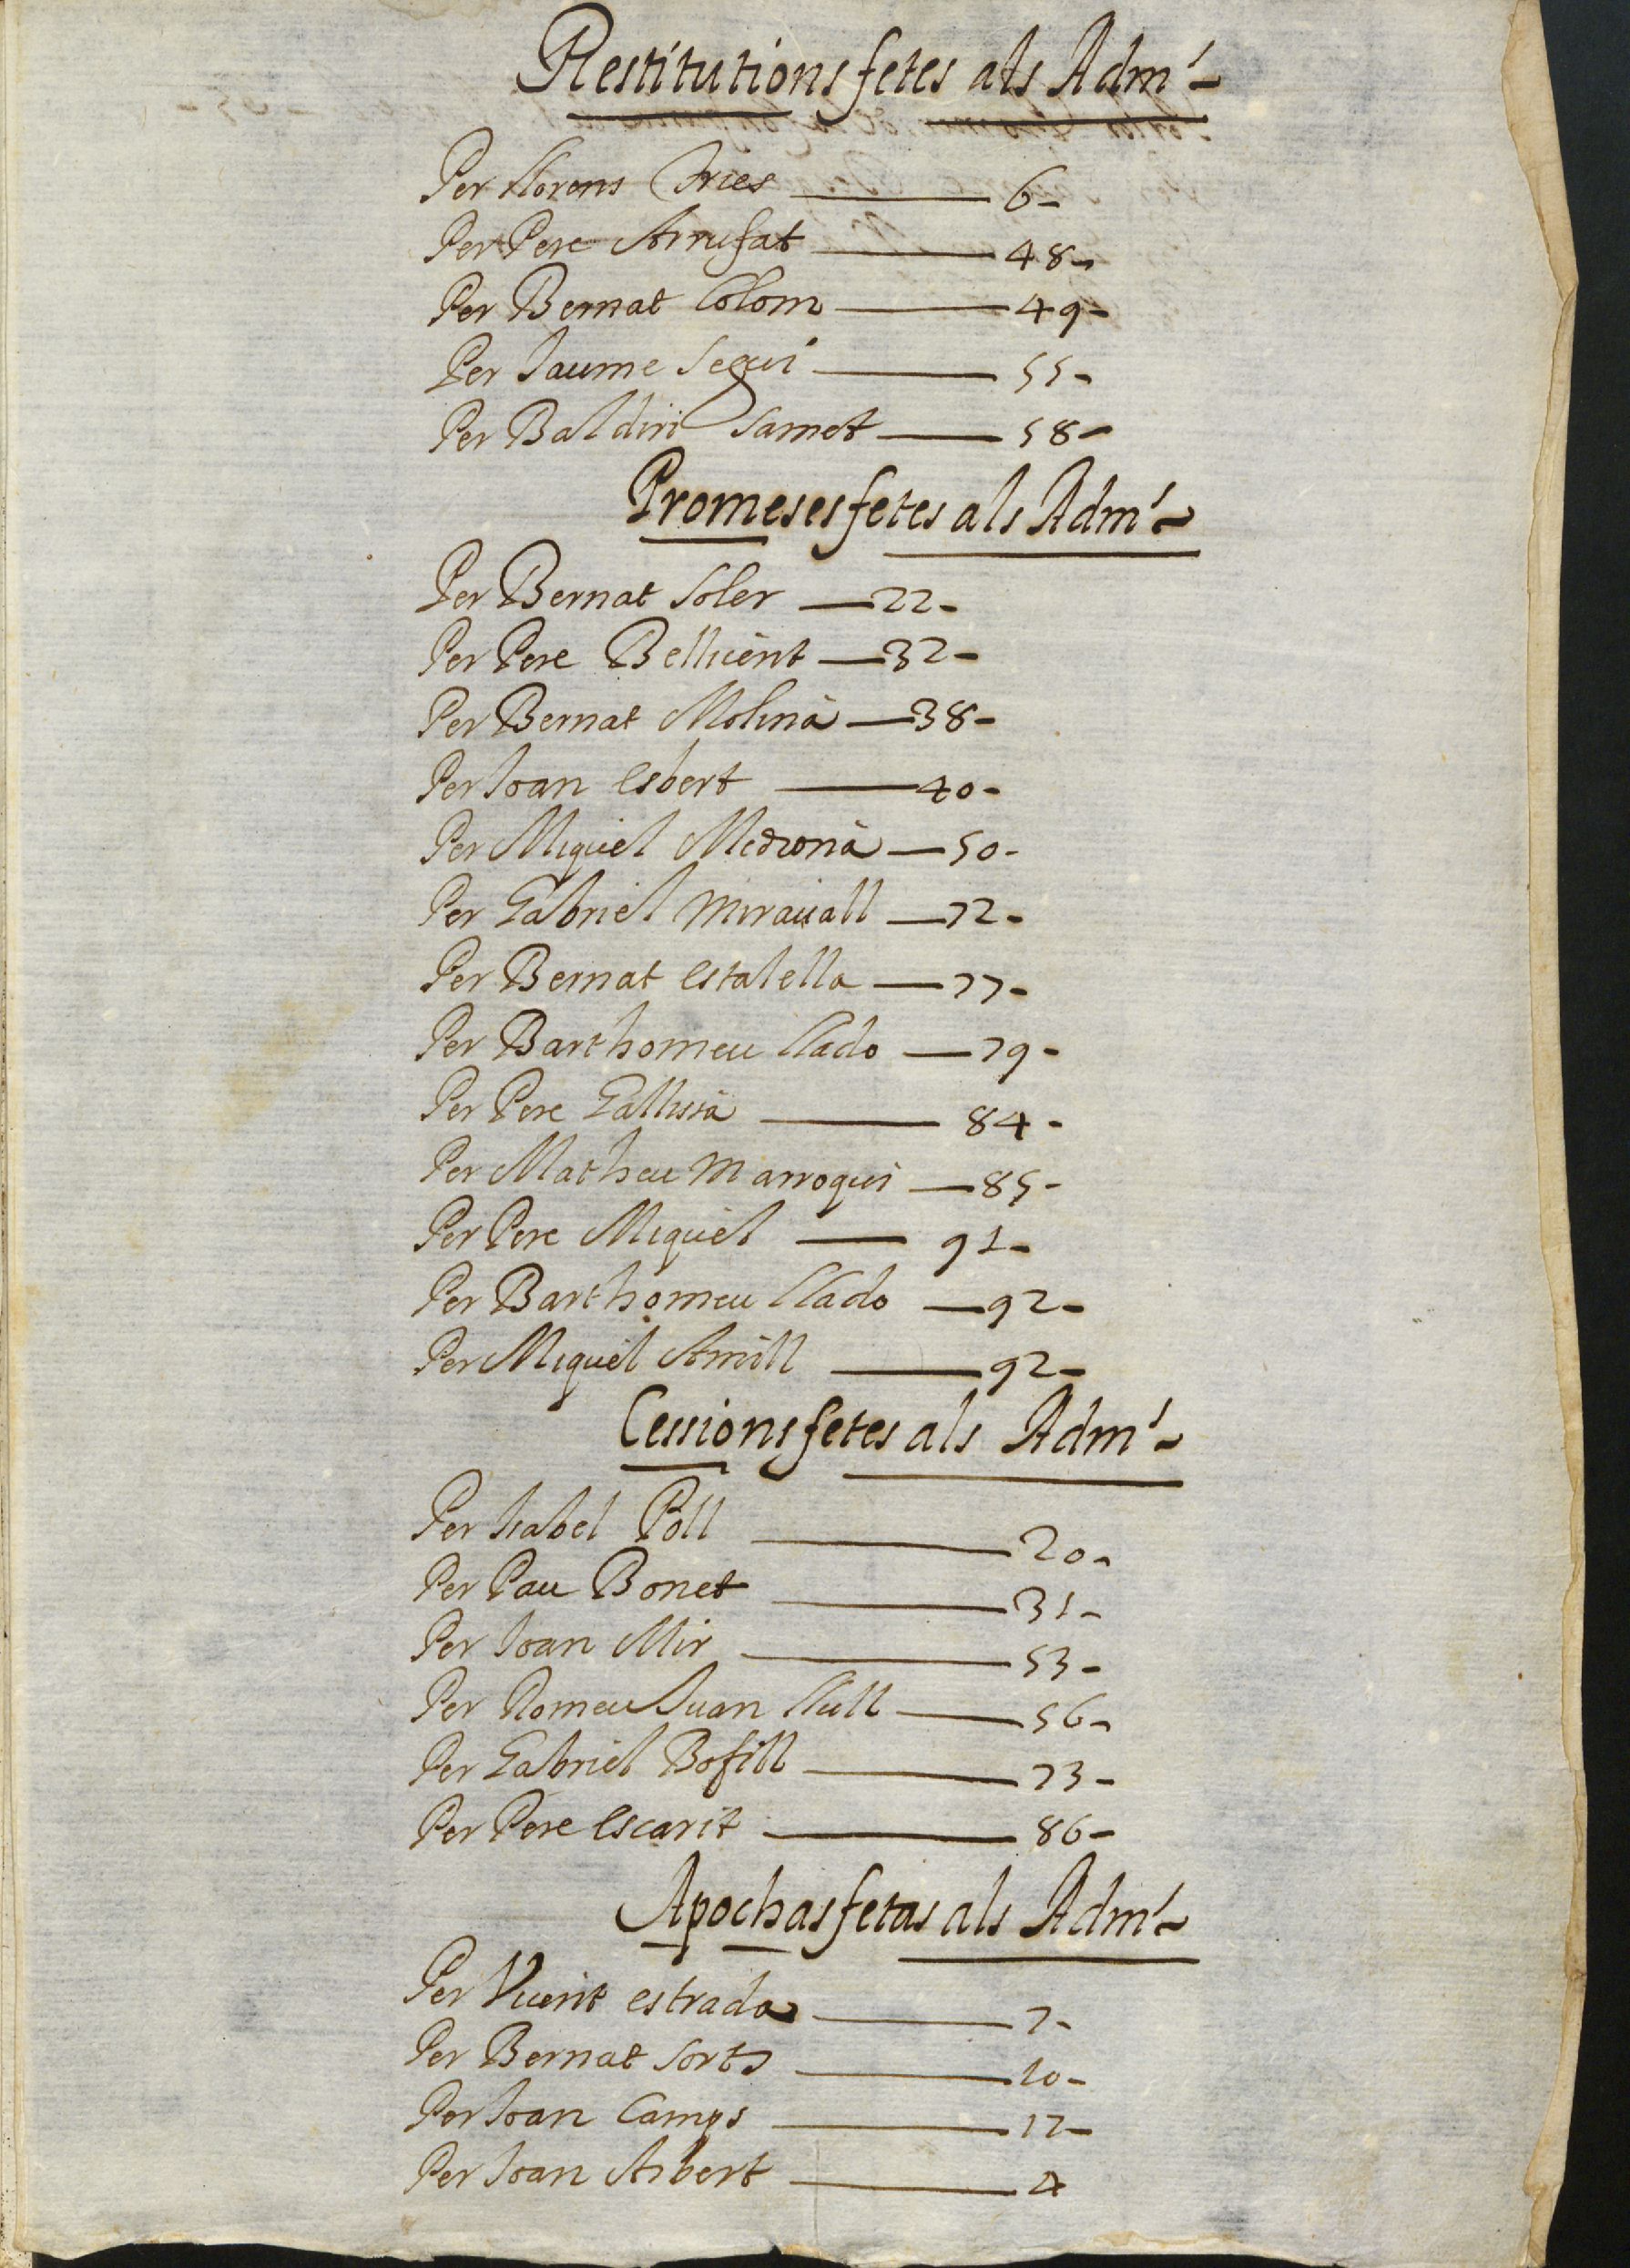 Restitutions fetes als Adm.rs
Per Llorens Aries 6
Per Pere Arrufat 48
Per Bernat Colom 49
Per Jaume Segui 55
Per Baldiri Samet 58
Promeses fetes als Adm.rs
Per Bernat Soler 22
Per Pere Bellvient 32
Per Bernat Molinà 38
Per Joan Esbert 40
Per Miquel Medronà 50
Per Gabriel Mirauall 72
Per Bernat Estalella 77
Per Barthomeu Llado 79
Per Pere Gallissà 84
Per Matheu Marroqui 85
Per Pere Miquel 91
Per Barthomeu Llado 92
Per Miquel Amill 92
Cessions fetes als Adm.rs
Per Isabel Poll 20
Per Pau Bonet 31
Per Joan Mir 53
Per Romeu Juan Llull 56
Per Gabriel Bofill 73
Per Pere Escarit 86
Apochas fetas als Adm.rs
Per Vicent estrada 7
Per Bernat Sorts 10
Per Joan Camps 12
Per Joan Asbert 4